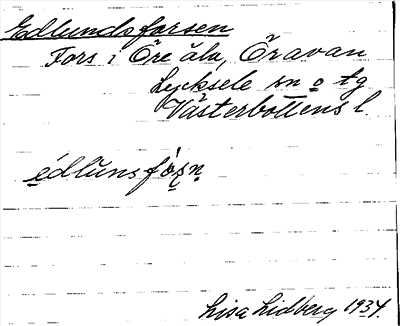 Edlundsforsen
Fors i Öre älv, Öravan
Lycksele sn o tg
Västerbottens l.
édlùnsfórsn
Lisa Lidberg 1934.